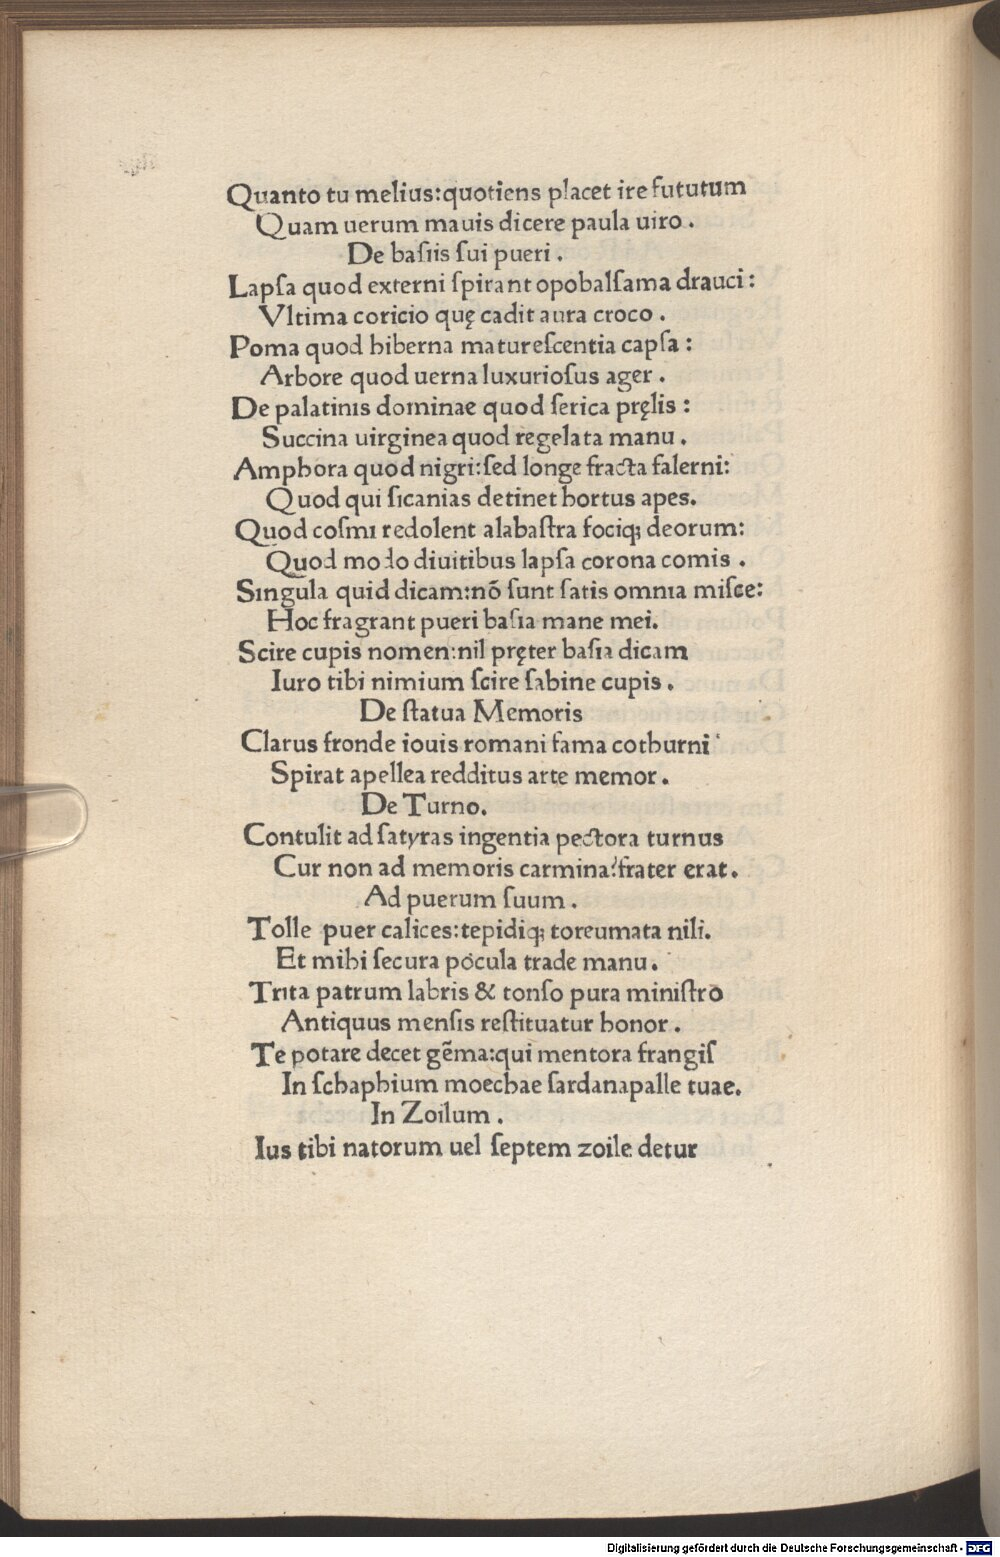 Quanto tu melius:quotiens placet ire fututum
Quam uerum mauis dicere paula uiro.
De baſiis ſui pueri.
Lapſa quod externi ſpirant opobalſama drauci:
Vltima coricio quę cadit aura croco.
Poma quod hiberna matureſcentia capſa:
Arbore quod uerna luxurioſus ager.
De palatinis dominae quod ſerica pręlis:
Succina uirginea quod regelata manu.
Amphora quod nigri:ſed longe fracta falerni:
Quod qui ſicanias detinet hortus apes.
Quod coſmi redolent alabaſtra fociqꝫ deorum:
Quod modo diuitibus lapſa corona comis.
Singula quid dicam:nõ ſunt ſatis omnia miſce:
Hoc fragrant pueri baſia mane mei.
Scire cupis nomen:nil pręter baſia dicam
Iuro tibi nimium ſcire ſabine cupis.
De ſtatua Memoris
Clarus fronde iouis romani fama cothurni
Spirat apellea redditus arte memor.
De Turno.
Contulit ad ſatyras ingentia pectora turnus
Cur non ad memoris carmina?frater erat.
Ad puerum ſuum.
Tolle puer calices:tepidiqꝫ toreumata nili.
Et mihi ſecura pocula trade manu.
Trita patrum labris & tonſo pura miniſtro
Antiquus menſis reſtituatur honor.
Te potare decet gẽma:qui mentora frangiſ
In ſchaphium moechae ſardanapalle tuae.
In Zoilum.
Ius tibi natorum uel ſeptem zoile detur
Digitalisierung gefördert durch die Deutsche Forschungsgemeinschaft - DFG